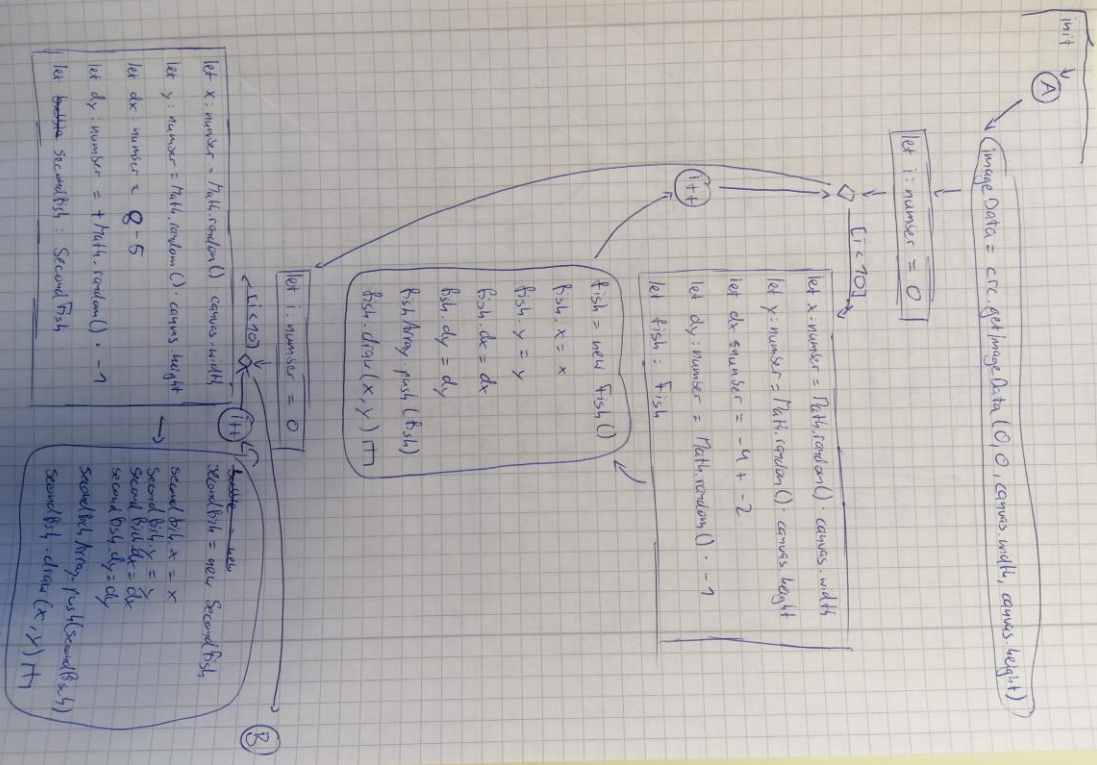 init
A
imageData = crc.getImageData(0,0, canvas.width, canvas.height)
let i: number = 0
[i < 10]
i++
let x: number = Math.random() · canvas.width
let y: number = Math.random() · canvas.height
let dx = -4 + -2
let dy: number = Math.random() · -1
let fish: Fish
fish = new Fish()
fish.x = x
fish.y = y
fish.dx = dx
fish.dy = dy
fishArray.push(fish)
fish.draw(x,y)
let i: number = 0
[i < 10]
i++
let x: number = Math.random() · canvas.width
let y: number = Math.random() · canvas.height
let dx: number = 8 - 5
let dy: number = + Math.random() · -1
let secondfish: SecondFish
bubble = new
secondfish = new Secondfish
secondfish.x = x
secondfish.y = y
secondfish.dx = dx
secondfish.dy = dy
secondfishArray.push(secondfish)
secondfish.draw(x,y)
B